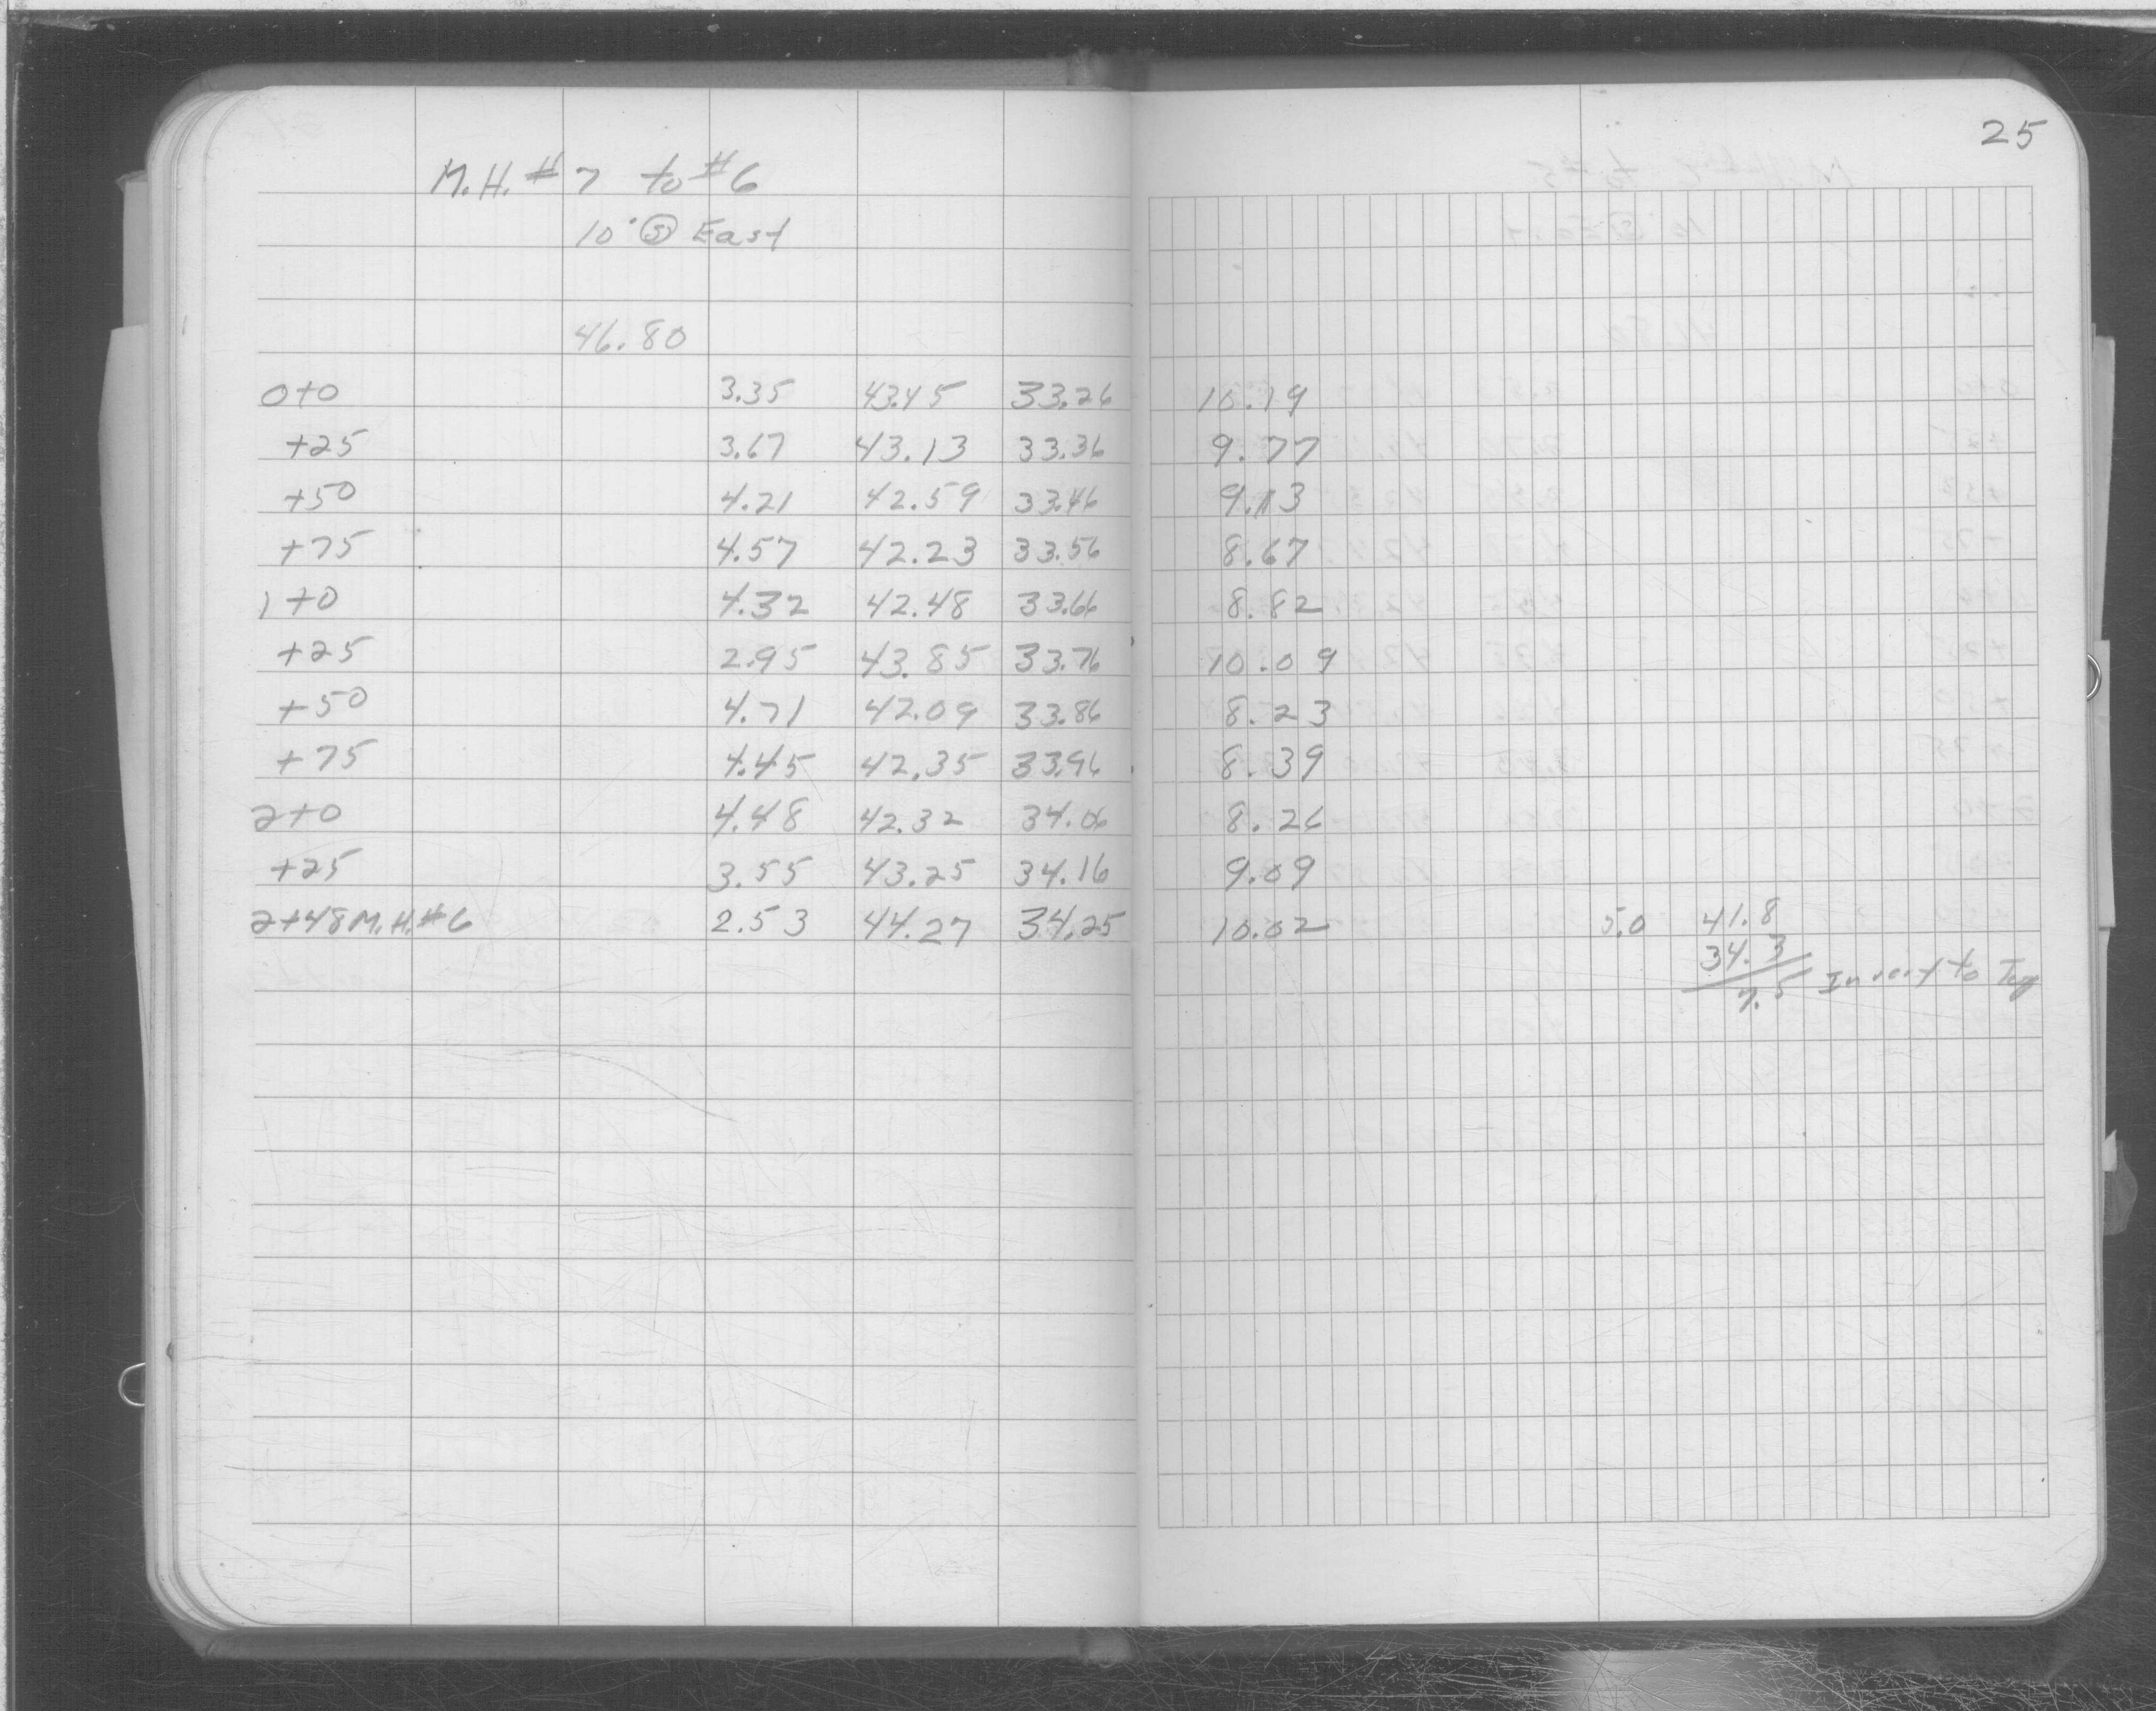 25
M.H. #7 to #6
10" Ⓢ East
46.80
0+0 3.35 43.45 33.26 10.19
+25 3.67 43.13 33.36 9.77
+50 4.21 42.59 33.46 9.13
+75 4.57 42.23 33.56 8.67
1+0 4.32 42.48 33.66 8.82
+25 2.95 43.85 33.76 10.09
+50 4.71 42.09 33.86 8.23
+75 4.45 42.35 33.96 8.39
2+0 4.48 42.32 34.06 8.26
+25 3.55 43.25 34.16 9.09
2+48 M.H.#6 2.53 44.27 34.25 10.02 5.0 41.8
34.3
7.5 Invert to